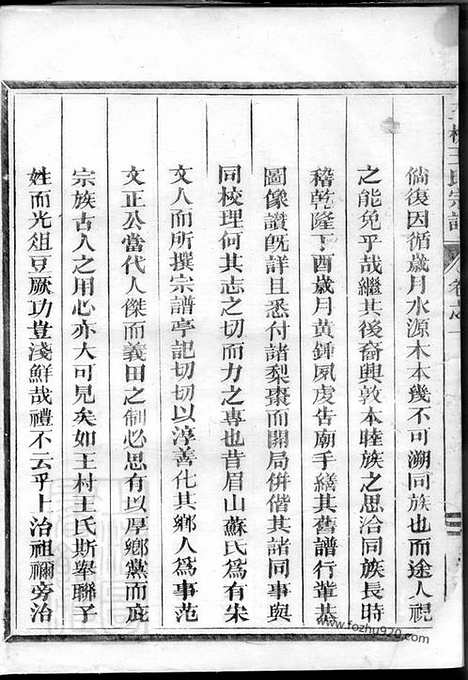 王村王氏宗譜
卷之一
倘復因循歲月水源木本幾不可溯回族也而途人視
之能免乎哉繼其後裔興敦本睦族之思洽同族長時
稽乾隆丁酉歲月黃鍾夙虔告廟手繕其舊譜行輩基
圖像讚旣詳且悉付諸梨棗而開局併偕其諸同事與
同校理何其志之切而力之專也昔眉山蘇氏為有宋
文人而所撰宗譜亭記切切以淳善化其鄉人為事范
文正公當代人傑而義田之制必思有以厚鄉黨而庇
宗族古人之用心亦大可見矣如王村王氏斯舉聯子
姓而光俎豆厥功豈淺鮮哉禮不云乎上治祖禰旁治
www.fozhu920.com